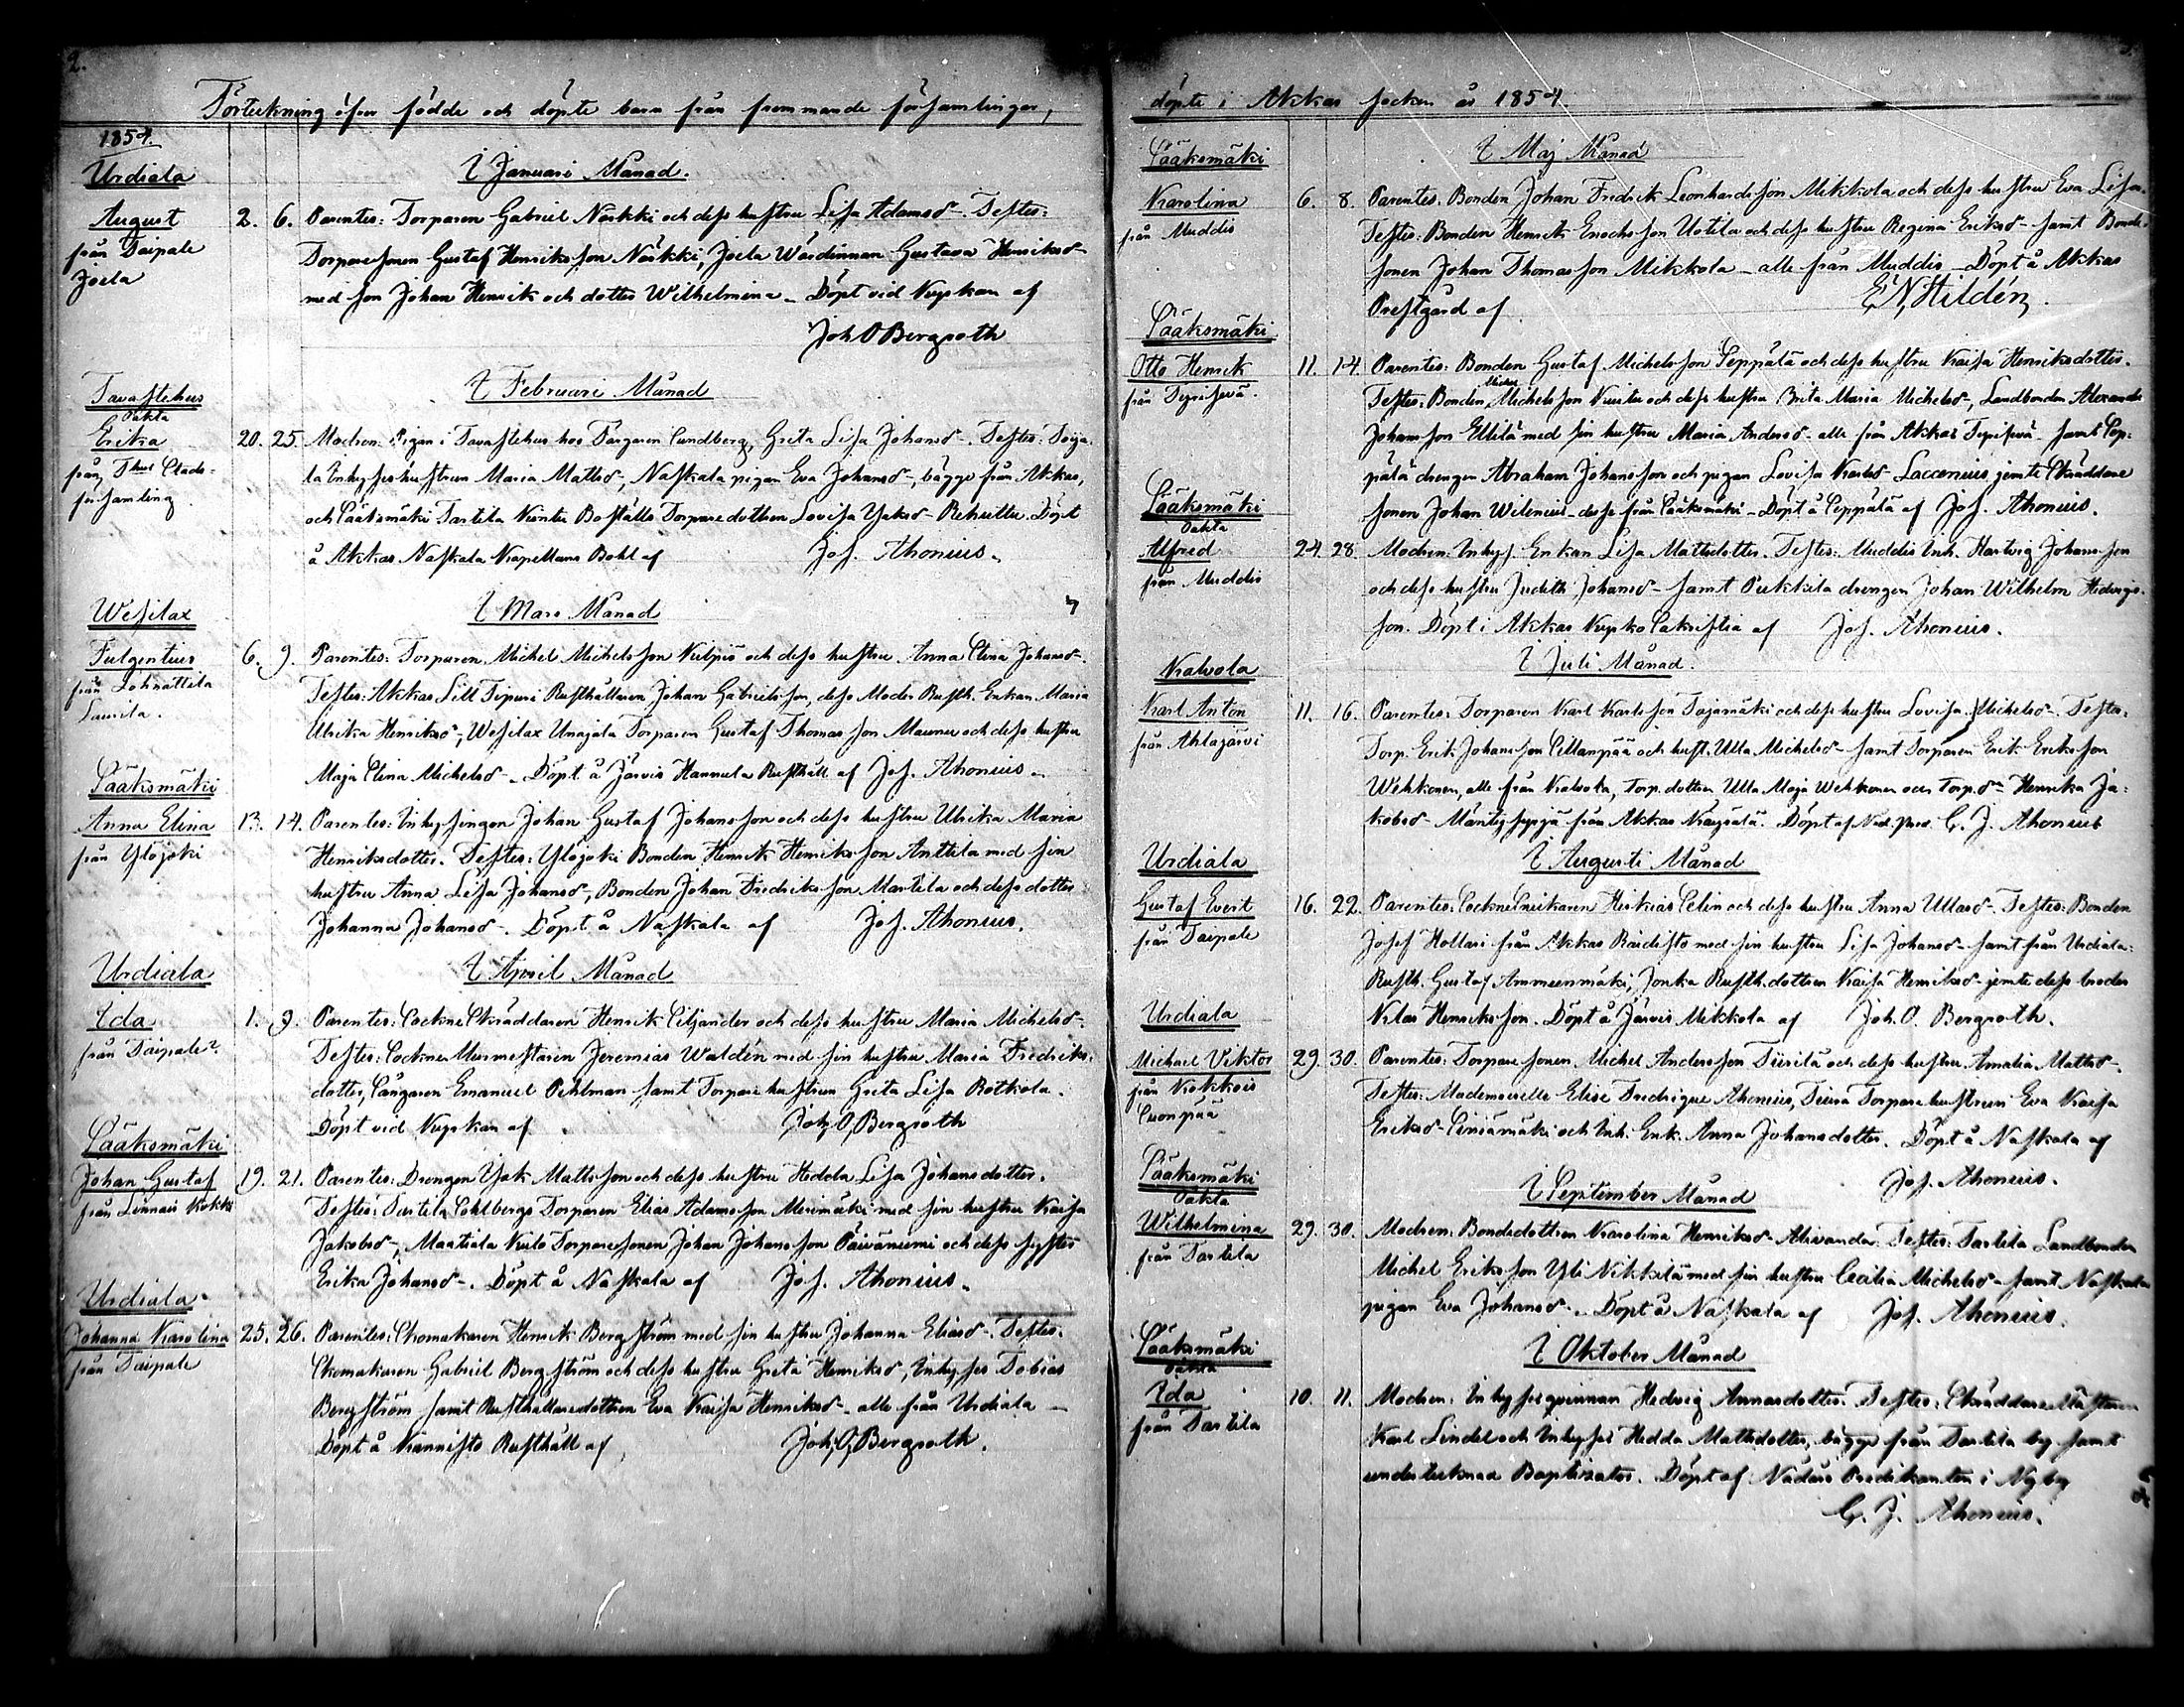 2.
Förteckning öfver födde och döpte barn från främmande församlingar,
1854.
Urdiala
I Januari Månad.
August 2. 6. Parentes: Torparen Gabriel Närkki och dess hustru Lisa Adamsd-. Testes:
från Taipale
Torparesonen Gustaf Henriksson Närkki, Joela Wärdinnan Gustava Henriksd-
Joela
med son Johan Henrik och dotter Wilhelmina - Döpt vid Kyrkan af
Joh O Bergroth
I Februari Månad
Tavastehus
Oäkta
Erika 20. 25. Modren: Pigan i Tavastehus hos Färgaren Lundberg, Greta Lisa Johansd-. Testes: Toija-
från Thus Stads-
la Inhyseshustrun Maria Mattsd-, Naskala pigan Eva Johansd-, bägge från Akkas,
församling
och Sääksmäki Tarttila Boställs Torparedottren Lovisa Isaksd- Döpt
å Akkas Naskala Kapellans Bohl af Jos. Ahonius.
Wesilax
I Mars Månad
Fulgentius 6. 9. Parentes: Torparen Michel Michelsson Kulpiö och dess hustru Anna Stina Johansd-.
från
Testes: Akkas Rusthållaren Johan Gabrielsson, dess Moder Rusth. Enkan Maria
Laurila.
Ulrika Henriksd-, Wesilax Unajala Torparen Gustaf Thomasson Maunu och dess hustru
Maja Stina Michelsd-. Döpt å Järvis Hannula Rusthåll af Jos. Ahonius.
Sääksmäki
Anna Elina 13. 14. Parentes: Inhysingen Johan Gustaf Johansson och dess hustru Ulrika Maria
från Ylöjoki
Henriksdotter. Testes: Ylöjoki Bonden Henrik Henriksson Anttila med sin
hustru Anna Lisa Johansd-, Bonden Johan Fredriksson Marttila och dess dotter
Johanna Johansd-. Döpt å Naskala af Jos. Ahonius.
Urdiala
I April Månad
Ida 1. 9. Parentes: Sockne Skräddaren Henrik Siljander och dess hustru Maria Michelsd-.
från Taipale
Testes: Sockne Murmestaren Jeremias Waldén med sin hustru Maria Fredriks-
dotter, Emanuel Pihlman samt Torpare hustrun Greta Lisa Rotkola.
Döpt vid Kyrkan af Joh. O. Bergroth
Sääksmäki
Johan Gustaf 19. 21. Parentes: Drengen Isak Mattsson och dess hustru Hedda Lisa Johansdotter.
från Linnais Kokki
Testes: Tarttila Sohlbergs Torparen Elias Adamsson Merimäki med sin hustru Kaisa
Jakobsd-, Maatiala Torparesonen Johan Johansson Päiväniemi och dess syster
Erika Johansd-. Döpt å Naskala af Jos. Ahonius.
Urdiala
Johanna Karolina 25. 26. Parentes: Skomakaren Henrik Bergström med sin hustru Johanna Eliasd-. Testes:
från Taipale
Skomakaren Gabriel Bergström och dess hustru Greta Henriksd-, Inhyses Tobias
Bergström samt Rusthållaredottren Eva Kaisa Henriksd-. alle från Urdiala -
Döpt å Kännistö Rusthåll af Joh. O. Bergroth.
döpte i Akkas socken år 1854.
Sääksmäki
I Maj Månad
Karolina 6. 8. Parentes: Bonden Johan Fredrik Leonhardsson Mikkola och dess hustru Eva Lisa.
från Muddis
Testes: Bonden Henrik Enochsson Uotila och dess hustru Regina Eriksd- samt Bonde-
sonen Johan Thomasson Mikkola - alle från Muddis - Döpt å Akkas
Prestgård af E. N. Hildén.
Sääksmäki
Otto Henrik 11. 14. Parentes: Bonden Gustaf Michelsson Seppälä och dess hustru Kaisa Henriksdotter.
från
Testes: Bonden Michel Michelsson och dess hustru Brita Maria Michelsd-, Landbonden Alexander
Johansson Ellilä med sin hustru Maria Andersd- alle från Akkas samt Sep-
pälä drengen Abraham Johansson och pigan Lovisa Karlsd- Laccenius, jemte Skräddare
sonen Johan Wilenius - desse från Sääksmäki - Döpt å Seppälä af Jos. Ahonius.
Sääksmäki
Oäkta
Alfred 24. 28. Modren: Inhys. Enkan Lisa Mattsdotter. Testes: Muddis Inh. Hartvig Johansson
från Muddis
och dess hustru Judith Johansd- samt Pukkila drengen Johan Wilhelm Hedvigs-
son. Döpt i Akkas Kyrko Sakristia af Jos. Ahonius.
Kalvola
I Juli Månad.
Karl Anton 11. 16. Parentes: Torparen Karl Karlsson Tojamäki och dess hustru Lovisa Michelsd-. Testes:
från Ahlajärvi
Torp. Erik Johansson Sillanpää och hust. Ulla Michelsd- samt Torparen Erik Eriksson
Wehkonen, alle från Kalvola, Torp.dottren Ulla Maja Wehkonen och Torp.d- Henrika Ja-
kobsd- från Akkas Döpt af Näd. Pred. G. J. Ahonius
Urdiala
I Augusti Månad
Gustaf Evert 16. 22. Parentes: Sockne Snickaren Heskias Selin och dess hustru Anna Ullasd-. Testes: Bonden
från Taipale
Josef Hollari från Akkas med sin hustru Lisa Johansd- samt från Urdiala:
Rusth. Gustaf Ammeenmäki, Jonka Rusth.dottren Kaisa Henriksd- jemte dess broder
Klas Henriksson. Döpt å Järvis Mikkola af Joh. O. Bergroth.
Urdiala
Michael Viktor 29. 30. Parentes: Torpare sonen Michel Andersson Tiirilä och dess hustru Amalia Mattsd-.
från Kokkois
Testes: Mademoiselle Elise Fredrique Ahonius, Torpare hustrun Eva Kaisa
Eriksd- och Inh. Enk. Anna Johansdotter. Döpt å Naskala af
Jos. Ahonius.
Sääksmäki
Oäkta
I September Månad
Wilhelmina 29. 30. Modren: Bondedottren Karolina Henriksd- Alivanda. Testes: Tarttila Landbonden
från Tarttila
Michel Eriksson Yli Nikkilä med sin hustru Cecilia Michelsd- samt Naskala
pigan Eva Johansd-. Döpt å Naskala af Jos. Ahonius.
Sääksmäki
Oäkta
I Oktober Månad
Ida 10. 11. Modren: Inhysesqvinnan Hedvig Annasdotter. Testes: Skräddare Mästaren
från Tarttila
Karl Lindel och Inhyses Hedda Mattsdotter, bägge från Tarttila by samt
undertecknad Baptizator. Döpt af Nådårs Predikanten i Nyby
G. J. Ahonius.